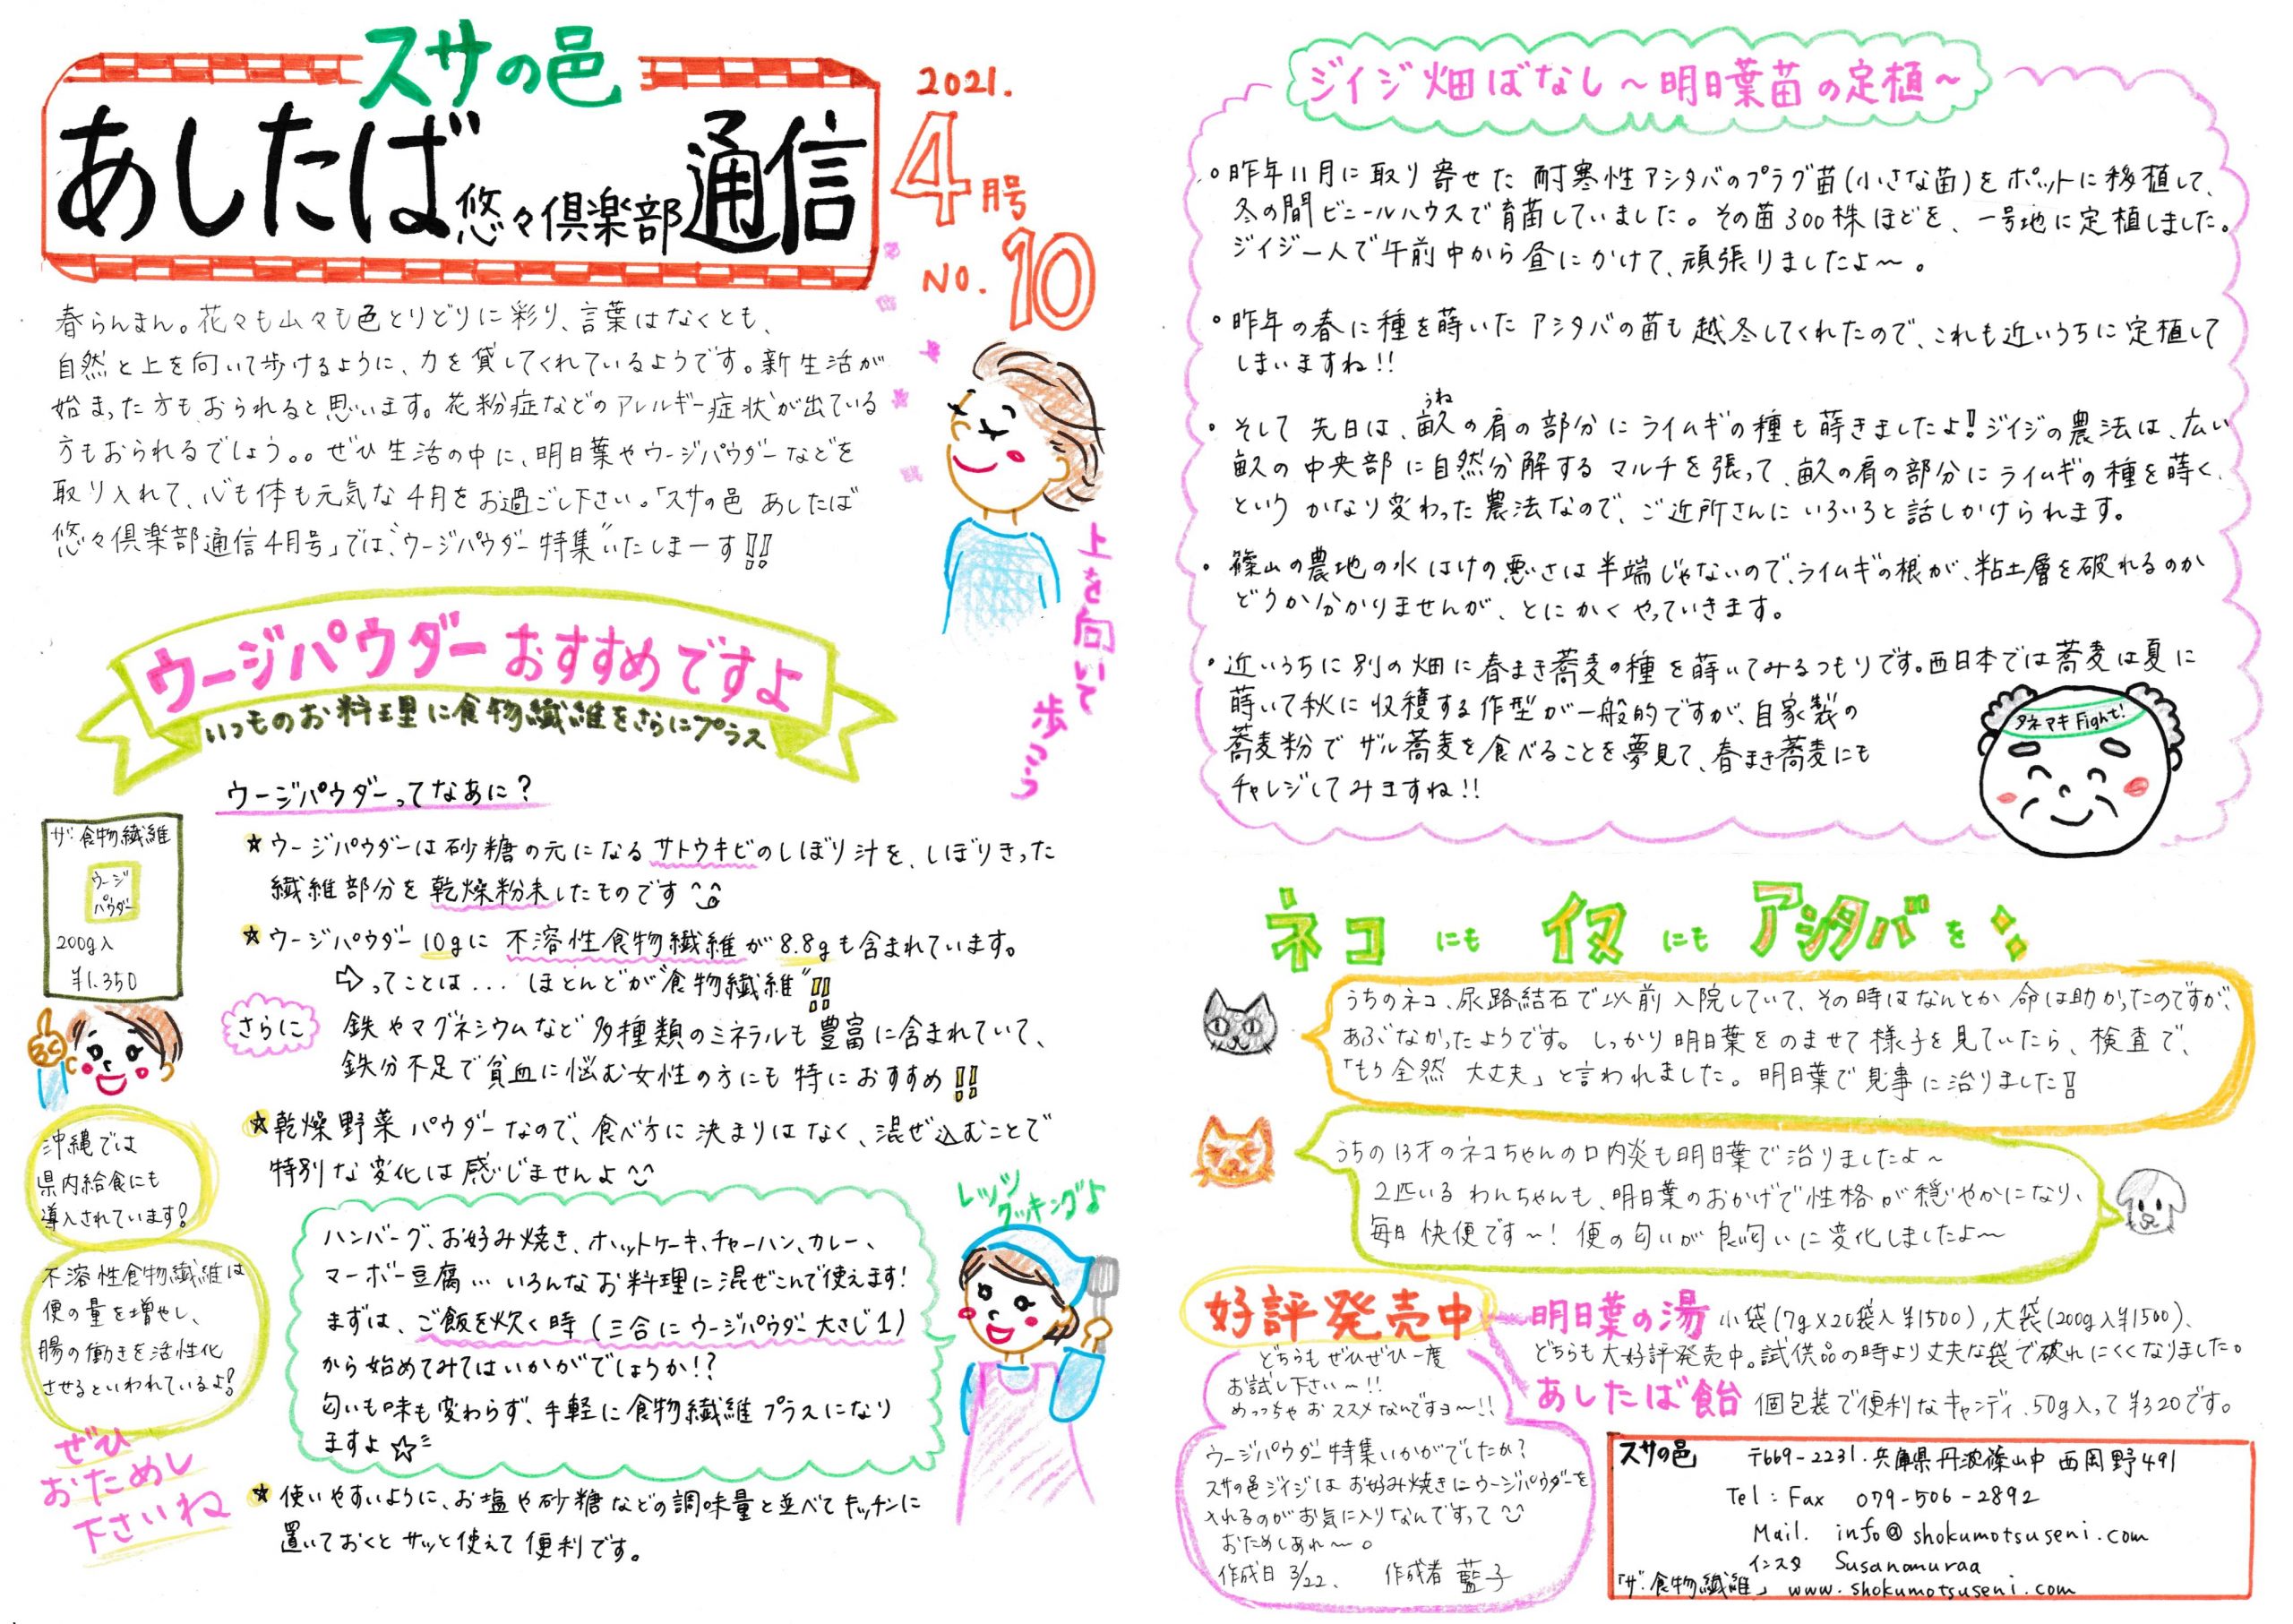 スサの邑
あしたば悠々倶楽部通信
2021.
4月号
NO.10
春らんまん。花々も山々も色とりどりに彩り、言葉はなくとも、
自然と上を向いて歩けるように、力を貸してくれているようです。新生活が
始まった方もおられると思います。花粉症などのアレルギー症状が出ている
方もおられるでしょう。。ぜひ生活の中に、明日葉やウージパウダーなどを
取り入れて、心も体も元気な4月をお過ごし下さい。「スサの邑 あしたば
悠々倶楽部通信4月号」では、“ウージパウダー特集”いたしまーす!!
上を向いて
歩こう
ウージパウダーおすすめですよ
いつものお料理に食物繊維をさらにプラス
ウージパウダーってなあに?
ザ・食物繊維
ウージ
パウダー
200g入
¥1.350
☆ウージパウダーは砂糖の元になるサトウキビのしぼり汁を、しぼりきった
繊維部分を乾燥粉末したものです
☆ウージパウダー10gに不溶性食物繊維が8.8gも含まれています。
⇨ってことは... ほとんどが“食物繊維”!!
さらに
鉄やマグネシウムなど多種類のミネラルも豊富に含まれていて、
鉄分不足で貧血に悩む女性の方にも特におすすめ!!
☆乾燥野菜パウダーなので、食べ方に決まりはなく、混ぜ込むことで
特別な変化は感じませんよ
沖縄では
県内給食にも
導入されています!
不溶性食物繊維は
便の量を増やし、
腸の働きを活性化
させるといわれているよ!
ぜひ
おためし
下さいね
レッツ
クッキング♪
ハンバーグ、お好み焼き、ホットケーキ、チャーハン、カレー、
マーボー豆腐…いろんなお料理に混ぜこんで使えます!
まずは、ご飯を炊く時(三合にウージパウダー大さじ1)
から始めてみてはいかがでしょうか!?
匂いも味も変わらず、手軽に食物繊維プラスになり
ますよ☆
☆使いやすいように、お塩や砂糖などの調味量と並べてキッチンに
置いておくとサッと使えて便利です。
ジイジ畑ばなし～明日葉苗の定植～
・昨年11月に取り寄せた耐寒性アシタバのプラグ苗(小さな苗)をポットに移植して、
冬の間ビニールハウスで育苗していました。その苗300株ほどを、一号地に定植しました。
ジイジ一人で午前中から昼にかけて、頑張りましたよ〜。
・昨年の春に種を蒔いたアシタバの苗も越冬してくれたので、これも近いうちに定植して
しまいますね!!
うね
・そして先日は、畝の肩の部分にライムギの種も蒔きましたよ!ジイジの農法は、広い
畝の中央部に自然分解するマルチを張って、畝の肩の部分にライムギの種を蒔く、
というかなり変わった農法なので、ご近所さんにいろいろと話しかけられます。
・篠山の農地の水はけの悪さは半端じゃないので、ライムギの根が、粘土層を破れるのか
どうか分かりませんが、とにかくやっていきます。
・近いうちに別の畑に春まき蕎麦の種を蒔いてみるつもりです。西日本では蕎麦は夏に
蒔いて秋に収穫する作型が一般的ですが、自家製の
蕎麦粉でザル蕎麦を食べることを夢見て、春まき蕎麦にも
チャレジしてみますね!!
タネマキFight!
ネコにもイヌにもアシタバを
うちのネコ、尿路結石で以前入院していて、その時はなんとか命は助かったのですが、
あぶなかったようです。しっかり明日葉をのませて様子を見ていたら、検査で、
「もう全然大丈夫」と言われました。明日葉で見事に治りました!
うちの13才のネコちゃんの口内炎も明日葉で治りましたよ〜
2匹いるわんちゃんも、明日葉のおかげで性格が穏やかになり、
毎日快便です〜!便の匂いが良い匂いに変化しましたよ〜
好評発売中
明日葉の湯 小袋(7g×20袋入¥1500),大袋(200g入¥1500)、
どちらも大好評発売中。試供品の時より丈夫な袋で破れにくくなりました。
あしたば飴 個包装で便利なキャンディ、50g入って¥320です。
どちらもぜひぜひ一度
お試し下さい〜!!
めっちゃおススメなんですョ〜!!
ウージパウダー特集いかがでしたか?
スサの邑ジイジはお好み焼きにウージパウダーを
入れるのがお気に入りなんですって
おためしあれ〜。
作成日3/22、 作成者 藍子
スサの邑 〒669-2231.兵庫県丹波篠山市西岡野491
Tel:Fax 079-506-2892
Mail. info@shokumotsuseni.com
インスタ Susanomuraa
「ザ・食物繊維」 www.shokumotsuseni.com